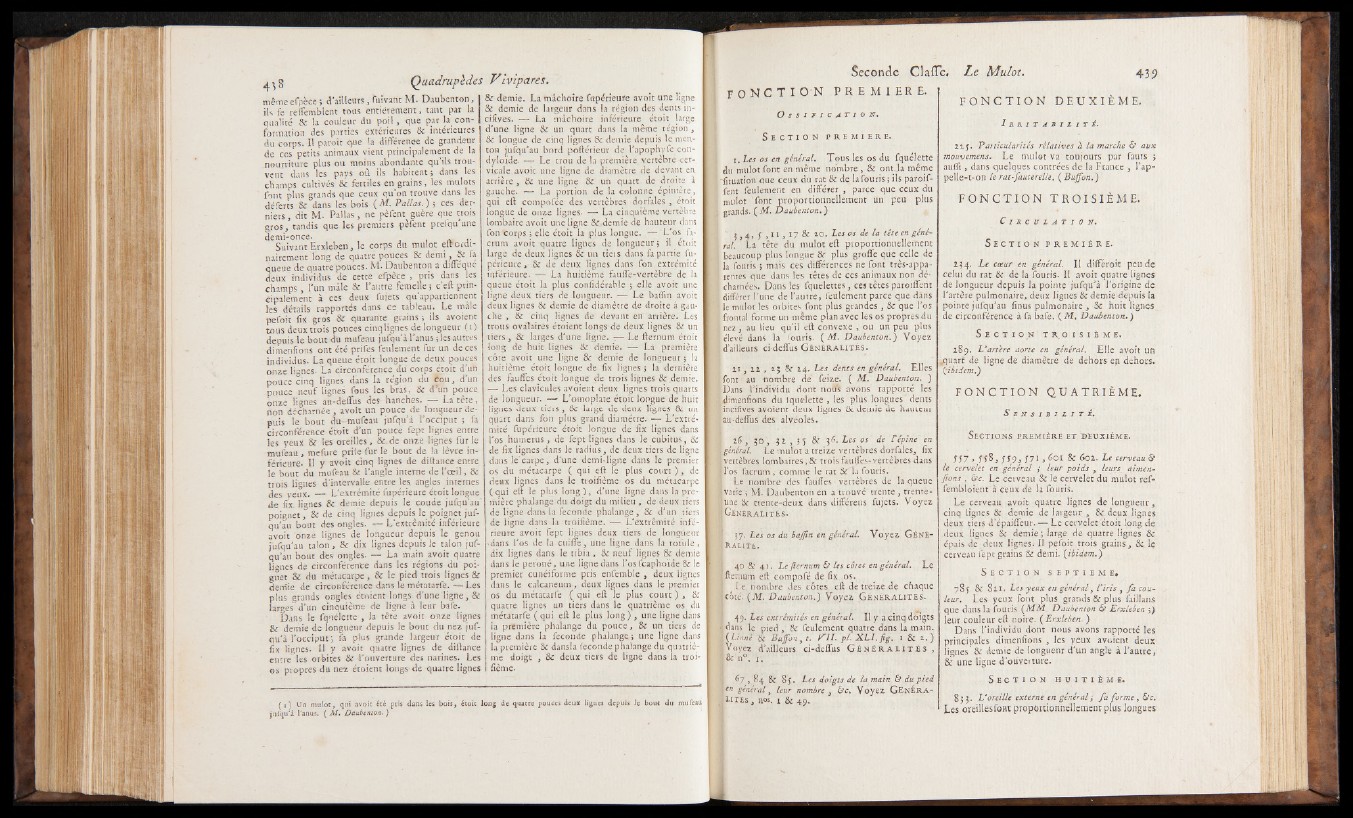 438 Quadrupèdes Vivipares.
même espèce ; d'ailleurs, suivant M. Daubenton,
ils se ressemblent tous entiérement, tant par la
qualité & la couleur du poil, que par la con-
formation des parties extérieures & intérieures
du corps. Il paroît que la différence de grandeur
de ces petits animaux vient principalement de la
nourriture plus ou moins abondante qu'ils trou-
vent dans les pays où ils habitent ; dans les
champs cultivés & fertiles en grains, les mulots
sont plus grands que ceux qu'on trouve dans les
déserts & dans les bois ( M. Pallas. ) ; ces der-
niers, dit M. Pallas, ne pèsent guère que trois
gros, tandis que les premiers pèsent presqu'une
demi-once.
Suivant Erxleben, le corps du mulot est ordi-
nairement long de quatre pouces & demi, & sa
queue de quatre pouces. M. Daubenton a disséqué
deux individus de cette espèce, pris dans les
champs, l'un mâle & l'autre femelle ; c'est prin-
cipalement à ces deux sujets qu'appartiennent
les détails rapportés dans ce tableau. Le mâle
pesoit six gros & quarante grains ; ils avoient
tous deux trois pouces cinq lignes de longueur (1)
depuis le bout du museau jusqu'à l'anus ; les autres
dimensions ont été prises seulement sur un de ces
individus. La queue étoit longue de deux pouces
onze lignes. La circonférence du corps étoit d'un
pouce cinq lignes dans la région du cou, d'un
pouce neuf lignes sous les bras, & d'un pouce
onze lignes au-dessus des hanches. — La tête,
non décharnée, avoit un pouce de longueur de-
puis le bout du museau jusqu'à l'occiput ; sa
circonférence étoit d'un pouce sept lignes entre
les yeux & les oreilles, & de onze lignes sur le
museau, mesure prise sur le bout de la lèvre in-
férieure. Il y avoit cinq lignes de distance entre
le bout du museau & l'angle interne de l'œil, &
trois lignes d'intervalle entre les angles internes
des yeux. — L'extrêmité supérieure étoit longue
de six lignes & demie depuis le coude jusqu'au
poignet, & de cinq lignes depuis le poignet jus-
qu'au bout des ongles. — L'extrêmité inférieure
avoit onze lignes de longueur depuis le genou
jusqu'au talon, & dix lignes depuis le talon jus-
qu'au bout des ongles. — La main avoit quatre
lignes de circonférence dans les régions du poi-
gnet & du métacarpe, & le pied trois lignes &
demie de circonférence dans le métatarse. — Les
plus grands ongles étoient longs d'une ligne, &
larges d'un cinquième de ligne à leur base.
Dans le squelette, la tête avoit onze lignes
& demie de longueur depuis le bout du nez jus-
qu'à l'occiput ; sa plus grande largeur étoit de
six lignes. Il y avoit quatre lignes de distance
entre les orbites & l'ouverture des narines. Les
os propres du nez étoient longs de quatre lignes
& demie. La mâchoire supérieure avoit une ligne
& demie de largeur dans la région des dents in-
cisives. — La mâchoire inférieure étoit large
d'une ligne & un quart dans la même région,
& longue de cinq lignes & demie depuis le men-
ton jusqu'au bord postérieur de l'apophyse con-
dyloïde. — Le trou de la première vertèbre cer-
vicale avoit une ligne de diamètre de devant en
arrière, & une ligne & un quart de droite à
gauche. — La portion de la colonne épinière,
qui est composée des vertèbres dorsales, étoit
longue de onze lignes. — La cinquième vertèbre
lombaire avoit une ligne & demie de hauteur dans
son corps ; elle étoit la plus longue. — L'os sa-
crum avoit quatre lignes de longueur ; il étoit
large de deux lignes & un tiers dans sa partie su-
périeure, & de deux lignes dans son extrêmité
inférieure. — La huitième fausse-vertèbre de la
queue étoit la plus considérable ; elle avoit une
ligne deux tiers de longueur. — Le bassin avoit
deux lignes & demie de diamètre de droite à gau-
che, & cinq lignes de devant en arrière. Les
trous ovalaires étoient longs de deux lignes & un
tiers, & larges d'une ligne. — Le sternum étoit
long de huit lignes & demie. — La première
côte avoit une ligne & demie de longueur ; la
huitième étoit longue de six lignes ; la dernière
des fausses étoit longue de trois lignes & demie.
— Les clavicules avoient deux lignes trois quarts
de longueur. — L'omoplate étoit longue de huit
lignes deux tiers, & large de deux lignes & un
quart dans son plus grand diamètre. — L'extrê-
mité supérieure étoit longue de six lignes dans
l'os humerus, de sept lignes dans le cubitus, &
de six lignes dans le radius, de deux tiers de ligne
dans le carpe, d'une demi-ligne dans le premier
os du métacarpe ( qui est le plus court ), de
deux lignes dans le troisième os du métacarpe
( qui est le plus long ), d'une ligne dans la pre-
mière phalange du doigt du milieu, de deux tiers
de ligne dans la seconde phalange, & d'un tiers
de ligne dans la troisième. — L'extrêmité infé-
rieure avoit sept lignes deux tiers de longueur
dans l'os de la cuisse, une ligne dans la rotule,
dix lignes dans le tibia, & neuf lignes & demie
dans le peroné, une ligne dans l'os scaphoïde & le
premier cunéiforme pris ensemble, deux lignes
dans le calcaneum, deux lignes dans le premier
os du métatarse ( qui est le plus court ), &
quatre lignes un tiers dans le quatrième os du
métatarse ( qui est le plus long ), une ligne dans
la première phalange du pouce, & un tiers de
ligne dans la seconde phalange ; une ligne dans
la première & dans la seconde phalange du quatriè-
me doigt, & deux tiers de ligne dans la troi-
sième.
(1) Un mulot, qui avoit été pris dans les bois, étoit long de quatre pouces deux lignes depuis le bout du museau
jusqu'à l'anus. ( M. Daubenton. )
Seconde Classe. Le Mulot. 439
FONCTION PREMIERE.
OSSIFICATION.
SECTION PREMIERE.
1. Les os en général. Tous les os du squélette
du mulot sont en même nombre, & ont la même
situation que ceux du rat & de la souris ; ils parois-
sent seulement en différer, parce que ceux du
mulot sont proportionnellement un peu plus
grands. ( M. Daubenton. )
3, 4, 5, 11, 17 & 20. Les os de la tête en géné-
ral. La tête du mulot est proportionnellement
beaucoup plus longue & plus grosse que celle de
la souris ; mais ces différences ne sont très-appa-
rentes que dans les têtes de ces animaux non dé-
charnées. Dans les squelettes, ces têtes paroissent
différer l'une de l'autre, seulement parce que dans
le mulot les orbites sont plus grandes, & que l'os
frontal forme un même plan avec les os propres du
nez, au lieu qu'il est convexe, ou un peu plus
élevé dans la souris. ( M. Daubenton. ) Voyez
d'ailleurs ci-dessus GÉNÉRALITÉS.
21, 22, 23 & 24. Les dents en général. Elles
sont au nombre de seize. ( M. Daubenton. )
Dans l'individu dont nous avons rapporté les
dimensions du squelette, les plus longues dents
incisives avoient deux lignes & demie de hauteur
au-dessus des alvéoles.
26, 30, 32, 35 & 36. Les os de l'épine en
général. Le mulot a treize vertèbres dorsales, six
vertèbres lombaires, & trois fausses-vertèbres dans
l'os sacrum, comme le rat & la souris.
Le nombre des fausses vertèbres de la queue
varie ; M. Daubenton en a trouvé trente, trente-
une & trente-deux dans différens sujets. Voyez
GÉNÉRALITÉS.
37. Les os du bassin en général. Voyez GÉNÉ-
RALITÉ.
40 & 41. Le sternum & les côtes en général. Le
sternum est composé de six os.
Le nombre des côtes est de treize de chaque
côté. ( M. Daubenton. ) Voyez GÉNÉRALITÉS.
49. Les extrêmités en général. Il y a cinq doigts
dans le pied, & seulement quatre dans la main.
( Linné & Buffon, t. VII. pl. XLI. fig. 1 & 2. )
Voyez d'ailleurs ci-dessus GÉNÉRALITÉS,
& n°. 1.
67, 84 & 85. Les doigts de la main & du pied
en général, leur nombre, &c. Voyez GÉNÉRA-
LITÉS, nos. 1 & 49.
FONCTION DEUXIÈME.
IRRITABILITÉ.
225. Particularités rélatives à la marche & aux
mouvemens. Le mulot va toujours par sauts ;
aussi, dans quelques contrées de la France, l'ap-
pelle-t-on le rat-sauterelle. ( Buffon. )
FONCTION TROISIÈME.
CIRCULATION.
SECTION PREMIÈRE.
234. Le cœur en général. Il différoit peu de
celui du rat & de la souris. Il avoit quatre lignes
de longueur depuis la pointe jusqu'à l'origine de
l'artère pulmonaire, deux lignes & demie depuis la
pointe jusqu'au sinus pulmonaire, & huit lignes
de circonférence à sa base. ( M. Daubenton. )
SECTION TROISIÈME.
289. L'artère aorte en général. Elle avoit un
quart de ligne de diamètre de dehors en dehors.
( ibidem. )
FONCTION QUATRIÈME.
SENSIBILITÉ.
SECTIONS PREMIÈRE ET DEUXIÈME.
557, 558, 559, 571, 601 & 602. Le cerveau &
le cervelet en général ; leur poids, leurs dimen-
sions, &c. Le cerveau & le cervelet du mulot res-
sembloient à ceux de la souris.
Le cerveau avoit quatre lignes de longueur,
cinq lignes & demie de largeur, & deux lignes
deux tiers d'épaisseur. — Le cervelet étoit long de
deux lignes & demie ; large de quatre lignes &
épais de deux lignes. Il pesoit trois grains, & le
cerveau sept grains & demi. ( ibidem. )
SECTION SEPTIEME.
785 & 821. Les yeux en général, l'iris, sa cou-
leur. Les yeux sont plus grands & plus saillans
que dans la souris ( MM. Daubenton & Erxleben ; )
leur couleur est noire. ( Erxleben. )
Dans l'individu dont nous avons rapporté les
principales dimensions, les yeux avoient deux
lignes & demie de longueur d'un angle à l'autre,
& une ligne d'ouverture.
SECTION HUITIÈME.
833. L'oreille externe en général ; sa forme, &c.
Les oreilles sont proportionnellement plus longues